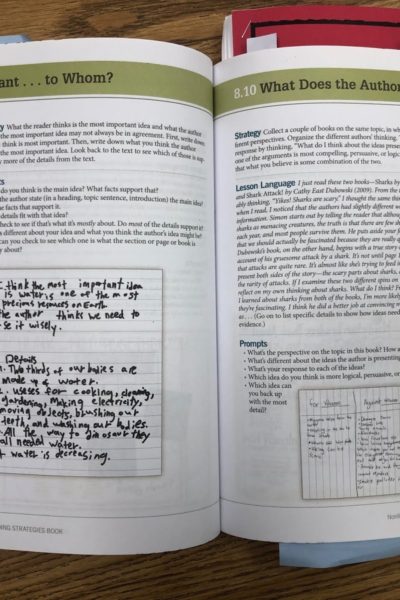 ant . . . to Whom?
What the reader thinks is the most important idea and what the author
the most important idea may not always be in agreement. First, write down
think is most important. Then, write down what you think the author
most important idea. Look back to the text to see which of those is sup-
y more of the details from the text.
ts
do you think is the main idea? What facts support that?
the author state (in a heading, topic sentence, introduction) the main idea?
e facts that support it.
details fit with that idea?
heck to see if that's what it's mostly about. Do most of the details support it?
different about your idea and what you think the author's idea might be?
can you check to see which one is what the section or page or book is
y about?
I think the most important idea
is water is one of the most
precious resources on Earth.
the author thinks we need to
se it wisely.
Details
Two thirds of our bodies are
made up of water.
uses for cooking, cleaning,
gardening, Making electricity
moving objects, brushing our
teeth, and washing our bodies.
All the way to dinosaurs they
all needed water.
water is decreasing.
NING STRATEGIES BOOK
8.10 What Does the Author
Strategy Collect a couple of books on the same topic, in wh
ferent perspectives. Organize the different authors' thinking.
response by thinking, "What do I think about the ideas present
one of the arguments is most compelling, persuasive, or logica
that what you believe is some combination of the two.
Lesson Language I just read these two books—Sharks by
and Shark Attack! by Cathy East Dubowski (2009). From the t
ably thinking, "Yikes! Sharks are scary." I thought the same thin
when I read, I noticed that the authors had slightly different w
information. Simon starts out by telling the reader that althoug
as menacing creatures, the truth is that there are few sh
each year, and most people survive them. He puts aside your fe
that we should actually be fascinated because they are really q
Dubowski's book, on the other hand, begins with a true story o
account of his gruesome attack by a shark. It's not until page
that attacks are quite rare. It's almost like she's trying to feed in
present both sides of the story—the scary parts about sharks, a
the rarity of attacks. If I examine these two different spins on
reflect on my own thinking about sharks. What do I think? Fr
I learned about sharks from both of the books, I'm more likely
they're fascinating. I think he did a better job at convincing m
as . . . (Go on to list specific details to show how ideas neede
evidence.)
Prompts
• What's the perspective on the topic in this book? How a
• What's different about the ideas the author is presenting
• What's your response to each of the ideas?
• Which idea do you think is more logical, persuasive, or
• Which idea can
you back up
with the most
detail?